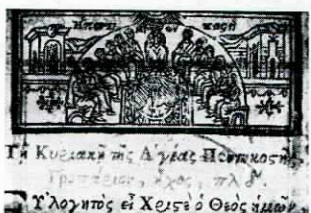 Τῇ Κυριακῇ τῆς Ἁγίας Πεντηκοστῆς
Τροπάριον, ἦχος, πλ δ
Υ̓λογητὸς εἶ Χριστὲ ὁ Θεὸς ἡμῶν